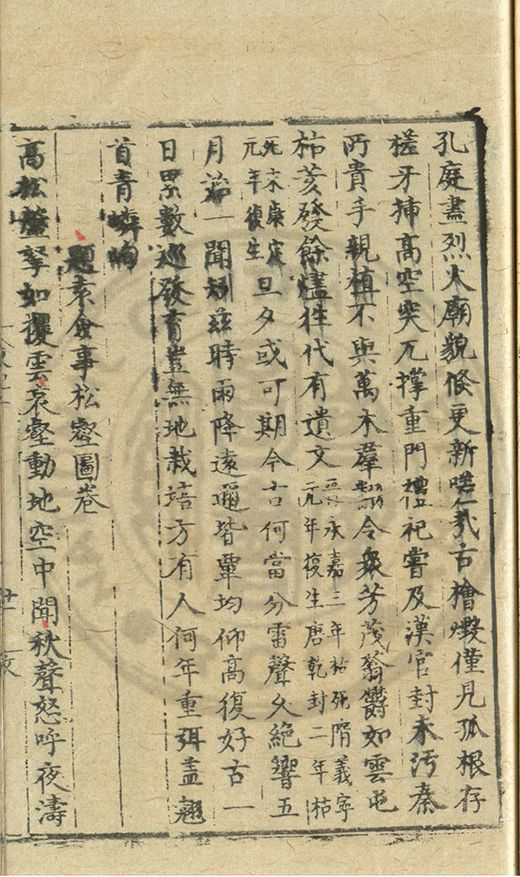 孔庭晝烈火廟貌倏更新嗟哉古檜燬僅見孤根存
槎牙揷高空突兀撑重門禋祀嘗及漢官封未污秦
所貴手親植不與萬木羣翻令衆芳茂蓊鬱如雲屯
枯荄發餘燼徃代有遺文晉永嘉三年枯死隋義寧元年復生唐乾封二年枯
死宋康定元年復生旦夕或可期今古何當分雷聲久絶響五
月始一聞矧兹時雨降遠邇皆覃均仰高復好古一
日累數巡發育豈無地栽培方有人何年重弭盖翹
首青嶙峋
題袁僉事松壑圖卷
高松拏如攫雲哀壑動地空中聞秋聲怒呼夜濤